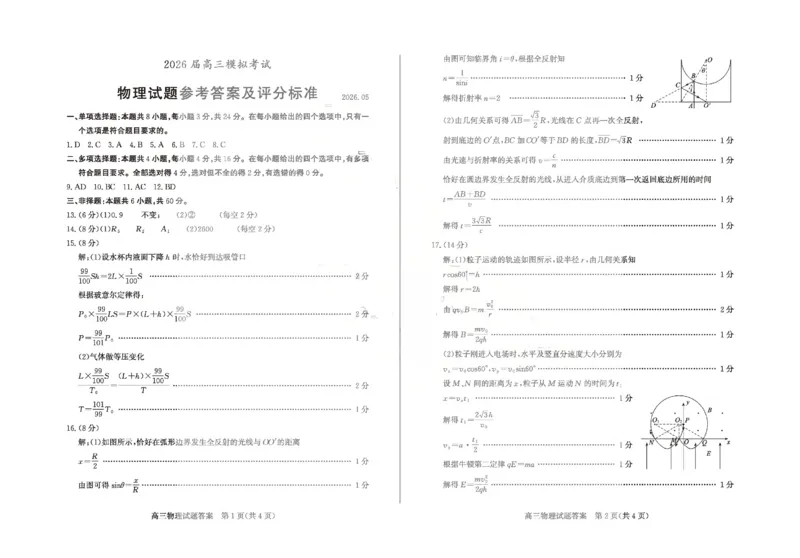 2026 届高三模拟考试
物理试题参考答案及评分标准 2026.05
一、单项选择题:本题共 8 小题,每小题 3 分,共 24 分。在每小题给出的四个选项中,只有一
个选项是符合题目要求的。
1. D 2. C 3. A 4. B 5. A 6. B 7. C 8. C
二、多项选择题:本题共 4 小题,每小题 4 分,共 16 分。在每小题给出的四个选项中,有多项
符合题目要求。全部选对得 4 分,选对但不全的得 2 分,有选错的得 0 分。
9. AD 10. BC 11. AC 12. BD
三、非择题:本题共 6 小题,共 60 分。
13. (6 分)(1)0.9 不变; (2)② (每空 2 分)
14. (8 分)(1)R₂ R₂ A₁ (2)2500 (每空 2 分)
15. (8 分)
解:(1)设水杯内液面下降 h 时,水恰好到达吸管口
99/100 Sh=2L×1/100 S …… 2 分
根据玻意尔定律得:
P₀×99/100 LS=P×(L+h)×99/100 S …… 2 分
P=99/101 P₀ …… 1 分
(2)气体做等压变化
L×99/100 S / T₀ = (L+h)×99/100 S / T …… 2 分
T=101/99 T₀ …… 1 分
16. (8 分)
解:(1)如图所示,恰好在弧形边界发生全反射的光线与 OO′的距离
x=R/2 …… 1 分
由图可得 sinθ=x/R …… 1 分
高三物理试题答案 第 1 页(共 4 页)
由图可知临界角 i=θ,根据全反射知
n=1/sini …… 1 分
解得折射率 n=2 …… 1 分
O
θ
B
i
C
D A O′
(2)由几何关系可得 AB=√3/2 R,光线在 C 点再一次全反射,
射到底边的 O′点,BC 加 CO′等于 BD 的长度,BD=√3R …… 1 分
由光速与折射率的关系可得 v=c/n …… 1 分
恰好在圆边界发生全反射的光线,从进入介质底边到第一次返回底边所用的时间
t=AB+BD/v …… 1 分
解得 t=3√3R/c …… 1 分
17. (14 分)
解:(1)粒子运动的轨迹如图所示,设半径 r,由几何关系知
rcos60°=h …… 1 分
解得 r=2h
由 qv₀B=m v₀²/r …… 2 分
解得 B=mv₀/2qh …… 1 分
(2)粒子刚进入电场时,水平及竖直分速度大小分别为
vₓ=v₀cos60°,vᵧ=v₀sin60° …… 1 分
设 M、N 间的距离为 x,粒子从 M 运动 N 的时间为 t₁
x=vₓt₁ …… 1 分
解得 t₁=2√3h/v₀
vᵧ=a·t₁/2 …… 1 分
根据牛顿第二定律 qE=ma …… 1 分
解得 E=mv₀²/2qh …… 1 分
y
B
O₁ O₂ P
N M O Q x
E
高三物理试题答案 第 2 页(共 4 页)